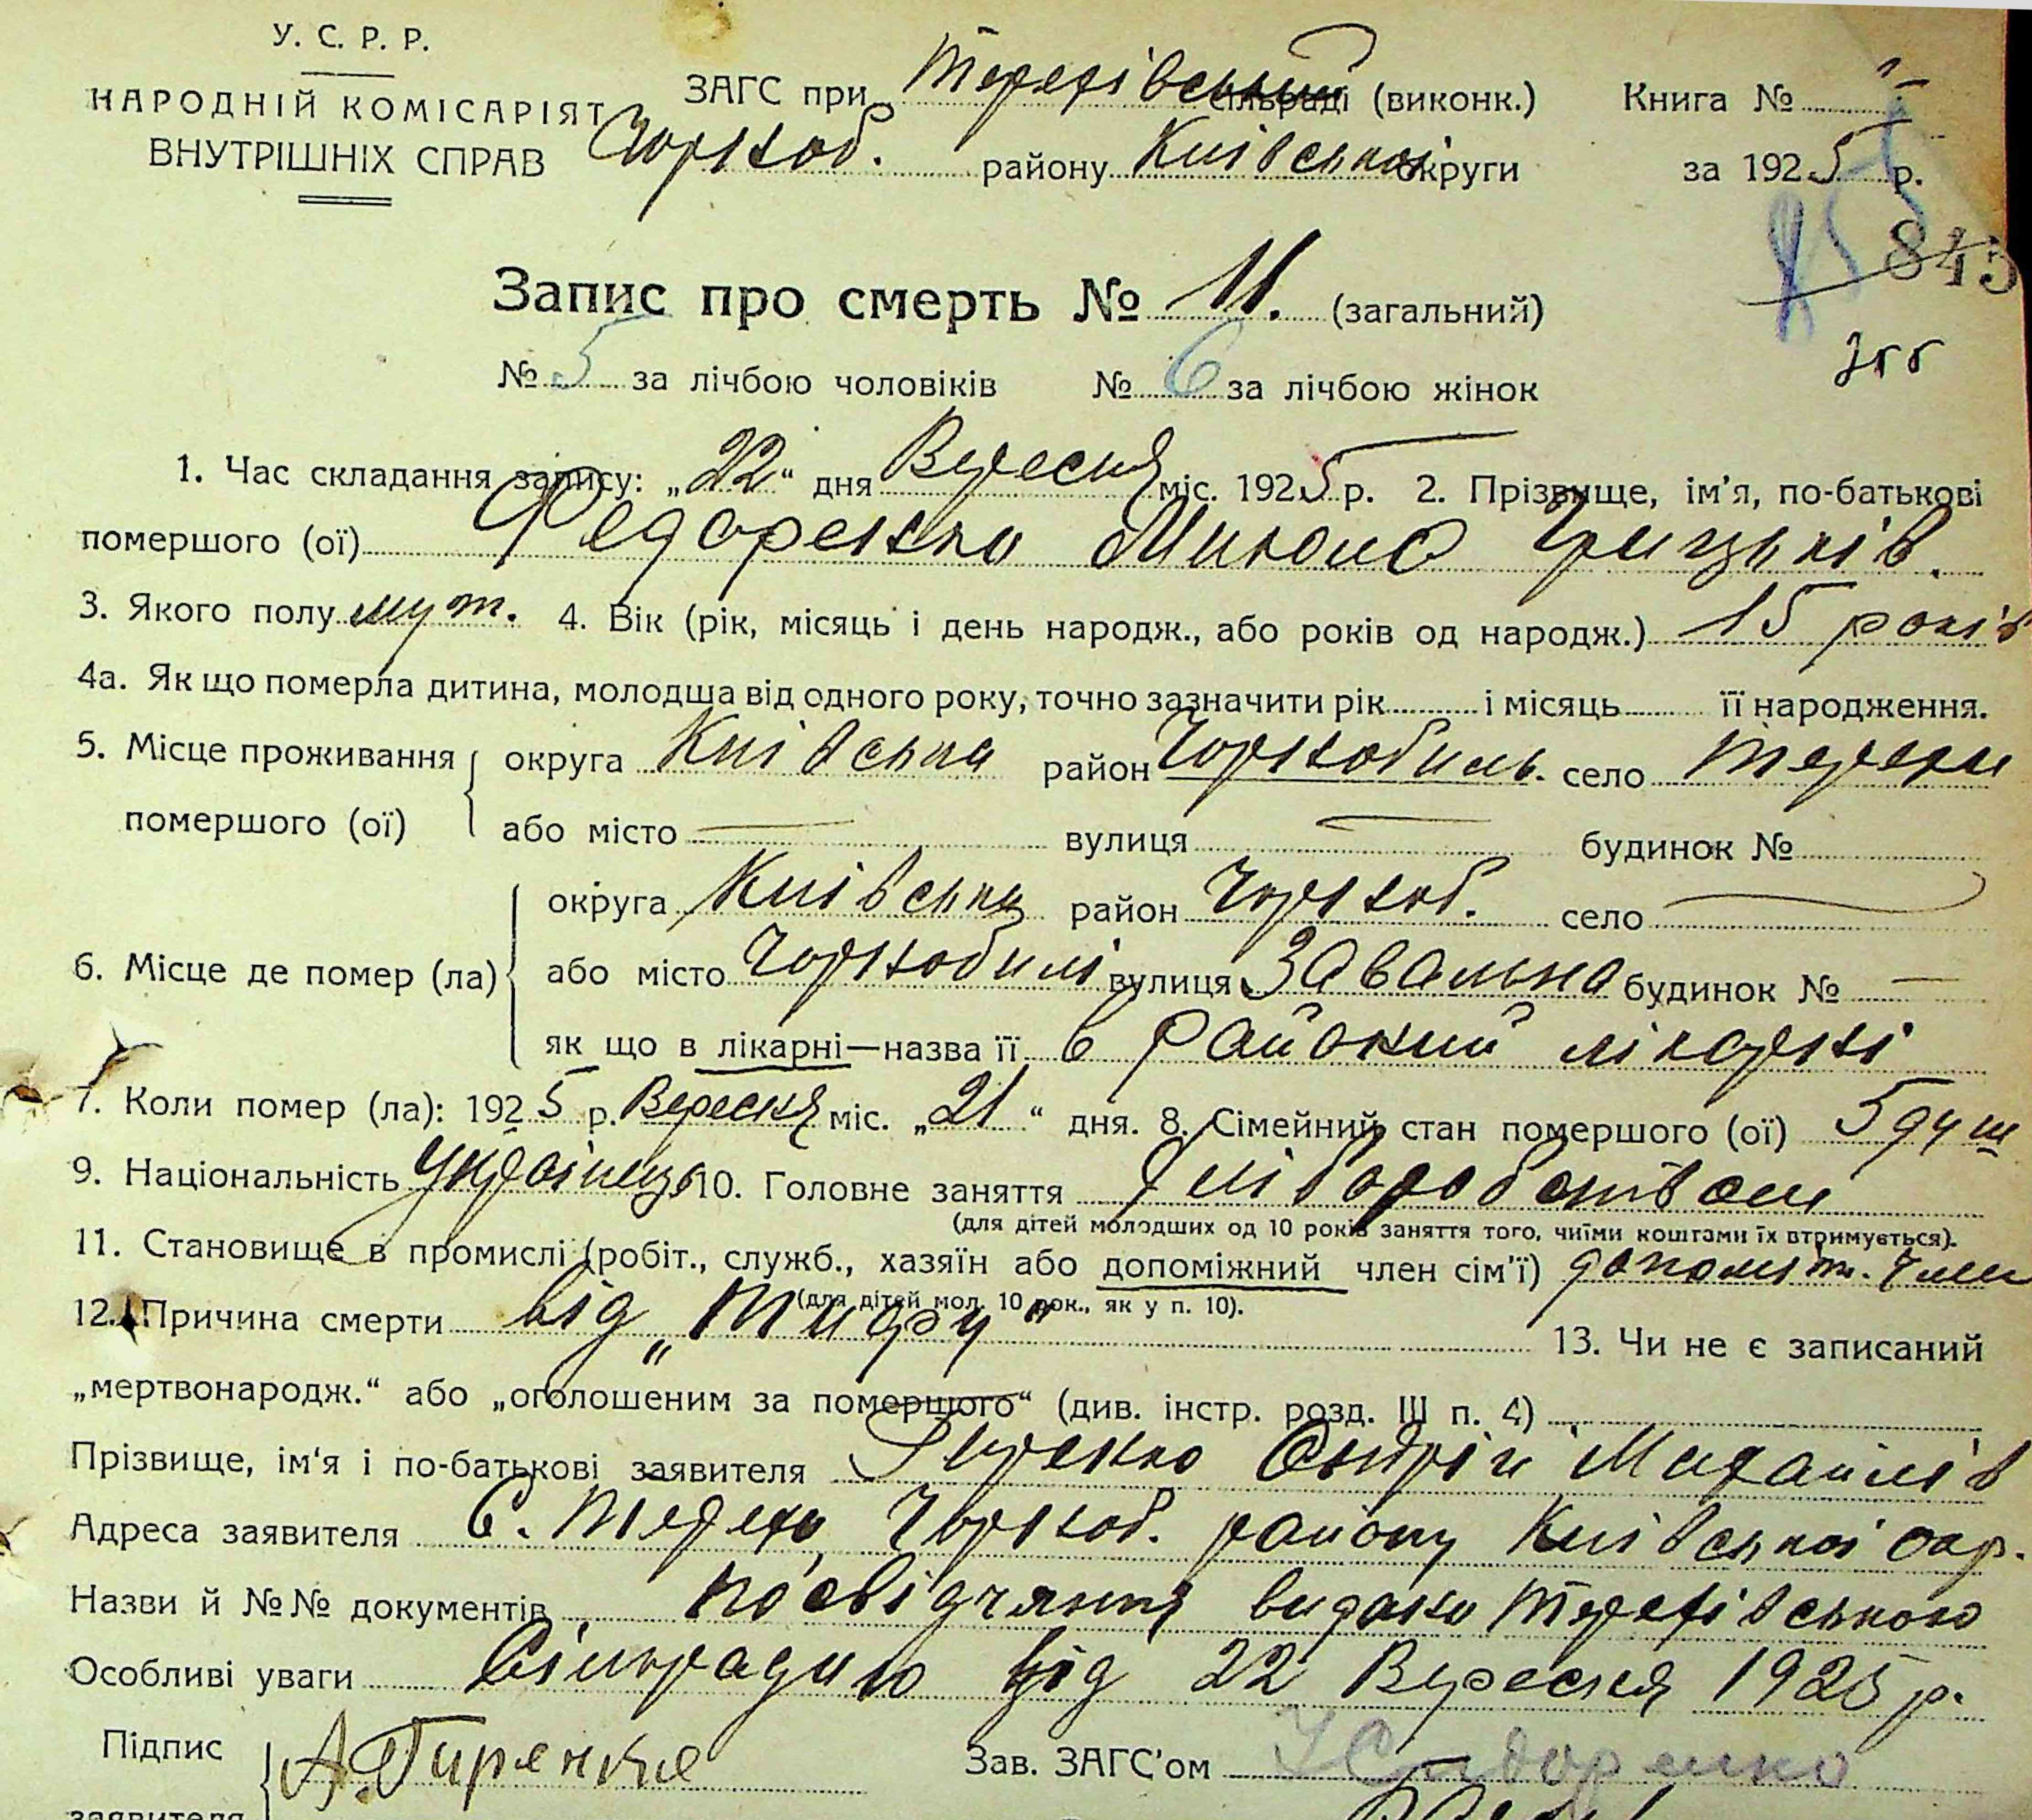 У. С. Р. Р.
НАРОДНІЙ КОМІСАРІЯТ
ВНУТРІШНІХ СПРАВ
ЗАГС при Терехівській сільраді (виконк.)
Чорноб. району Київської округи
Книга №
за 1925 р.
845
Запис про смерть № 11. (загальний)
№ 5 за лічбою чоловіків № 6 за лічбою жінок
1. Час складання запису: „22“ дня Вересня міс. 1925 р. 2. Прізвище, ім'я, по-батькові
помершого (ої) Федоренко Микола Грицьків.
3. Якого полу муж. 4. Вік (рік, місяць і день народж., або років од народж.) 15 років
4а. Як що померла дитина, молодша від одного року, точно зазначити рік і місяць її народження.
5. Місце проживання округа Київська район Чорнобиль. село Терехи
помершого (ої) або місто — вулиця — будинок №
округа Київська район Чорноб. село —
6. Місце де помер (ла) або місто Чорнобилі вулиця Завальна будинок № —
як що в лікарні—назва її в Районий лікарні
7. Коли помер (ла): 1925 р. Вересня міс. „21“ дня. 8. Сімейний стан помершого (ої) 5 душ
9. Національність Українець 10. Головне заняття хліборобством
(для дітей молодших од 10 років заняття того, чиїми коштами їх втримується).
11. Становище в промислі (робіт., служб., хазяїн або допоміжний член сім'ї) допоміж. член
(для дітей мол. 10 рок., як у п. 10).
12. Причина смерти від „Тифу“ 13. Чи не є записаний
„мертвонародж.“ або „оголошеним за помершого“ (див. інстр. розд. III п. 4)
Прізвище, ім'я і по-батькові заявителя Гиренко Андрій Михайлів
Адреса заявителя С. Терехи Чорноб. району Київської окр.
Назви й №№ документів посвідчення видано Терехівською
Особливі уваги Сільрадию від 22 Вересня 1925 р.
Підпис А. Гиренко Зав. ЗАГС'ом
заявителя